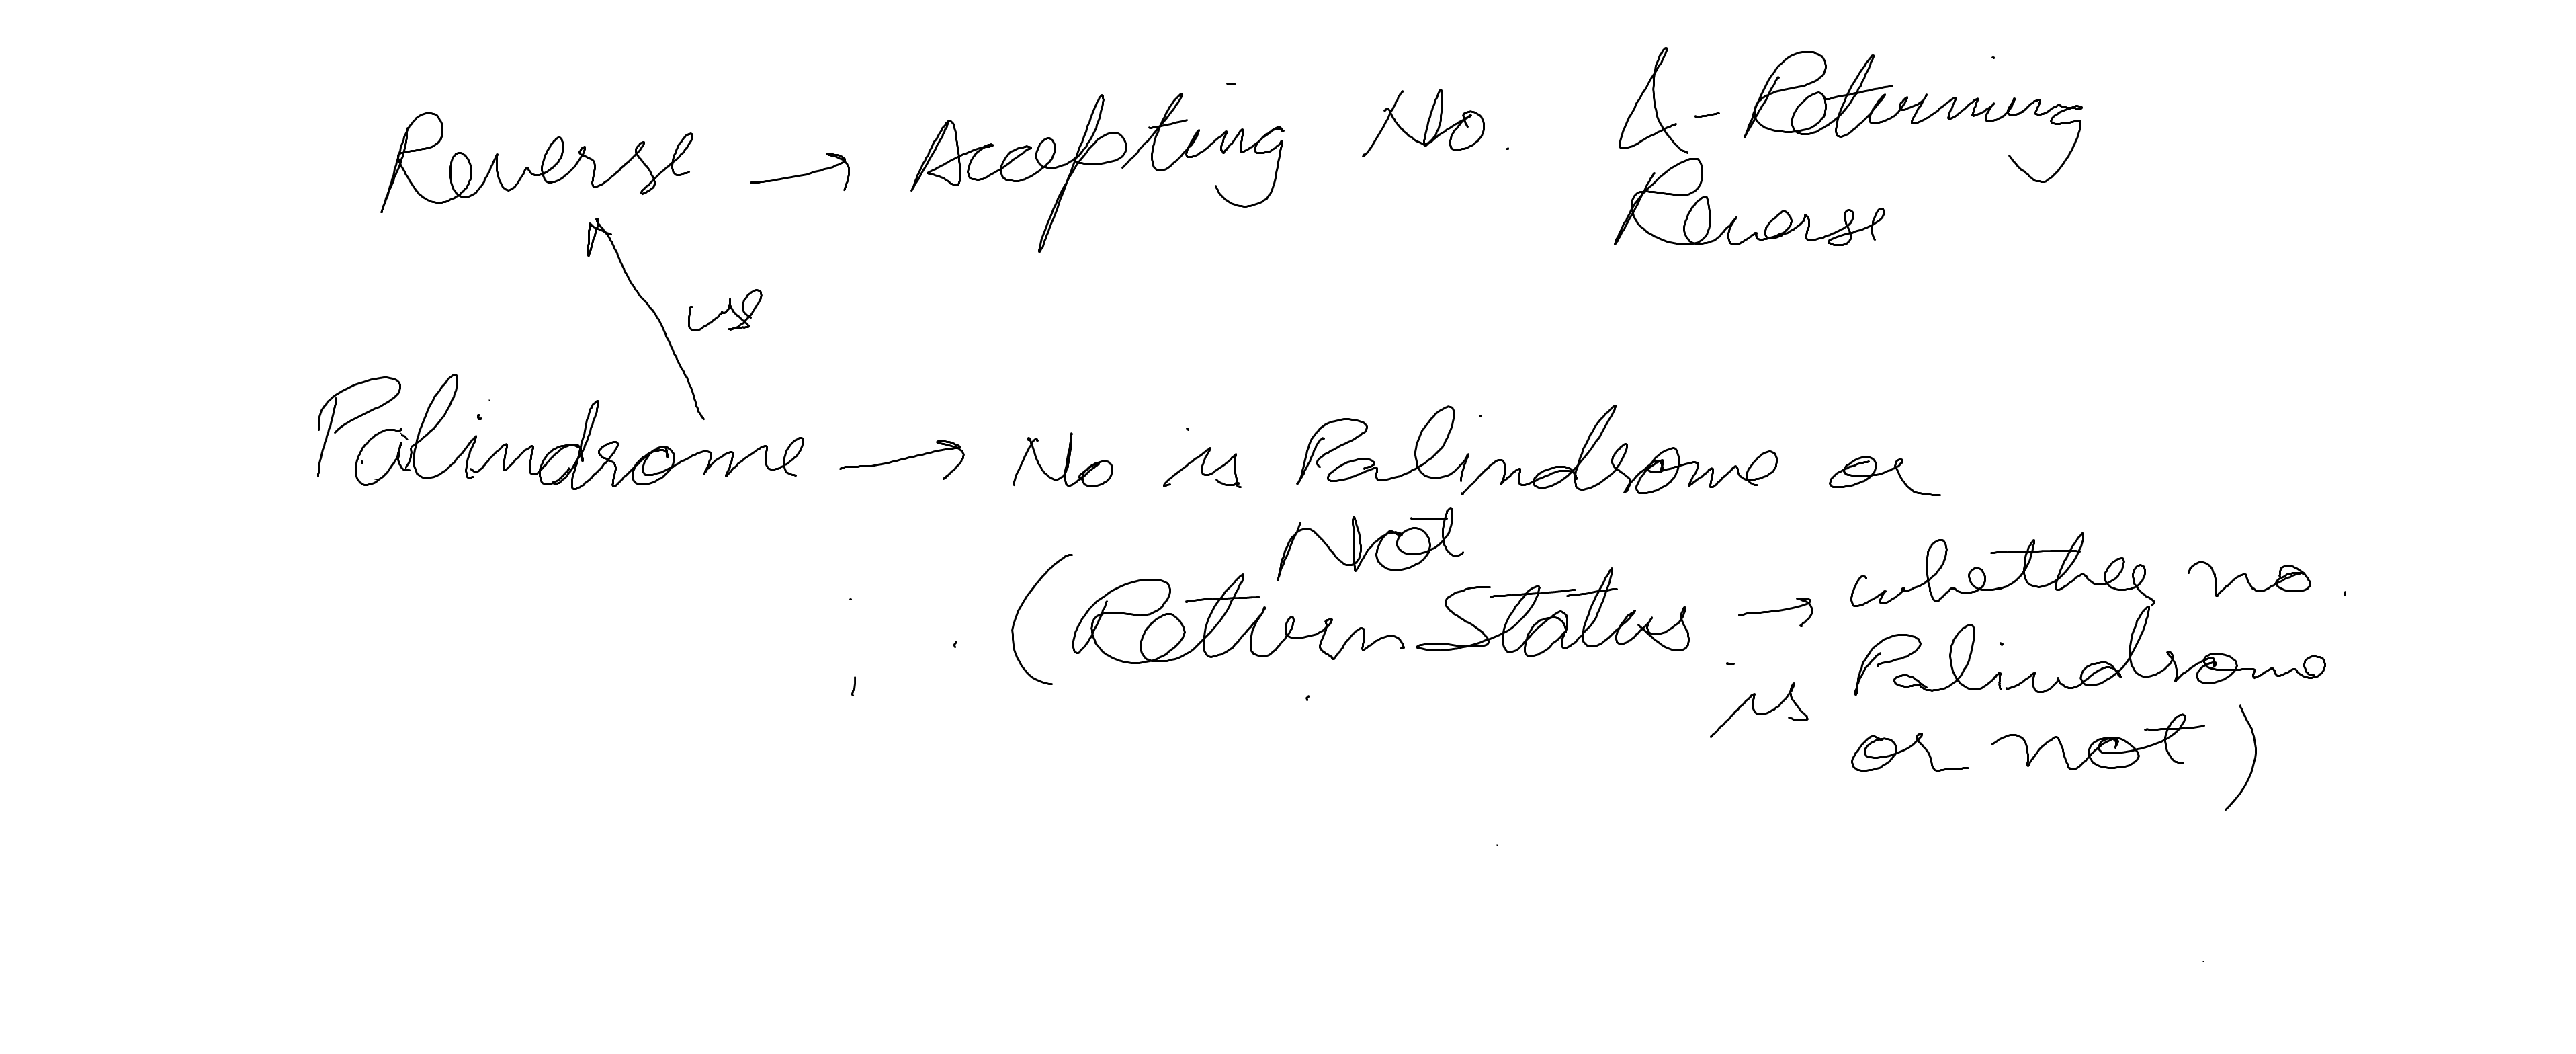 Reverse → Accepting No. & Returning
Reverse
use
Palindrome → No is Palindrome or
Not
(Return Status → whether no.
is Palindrome
or not)